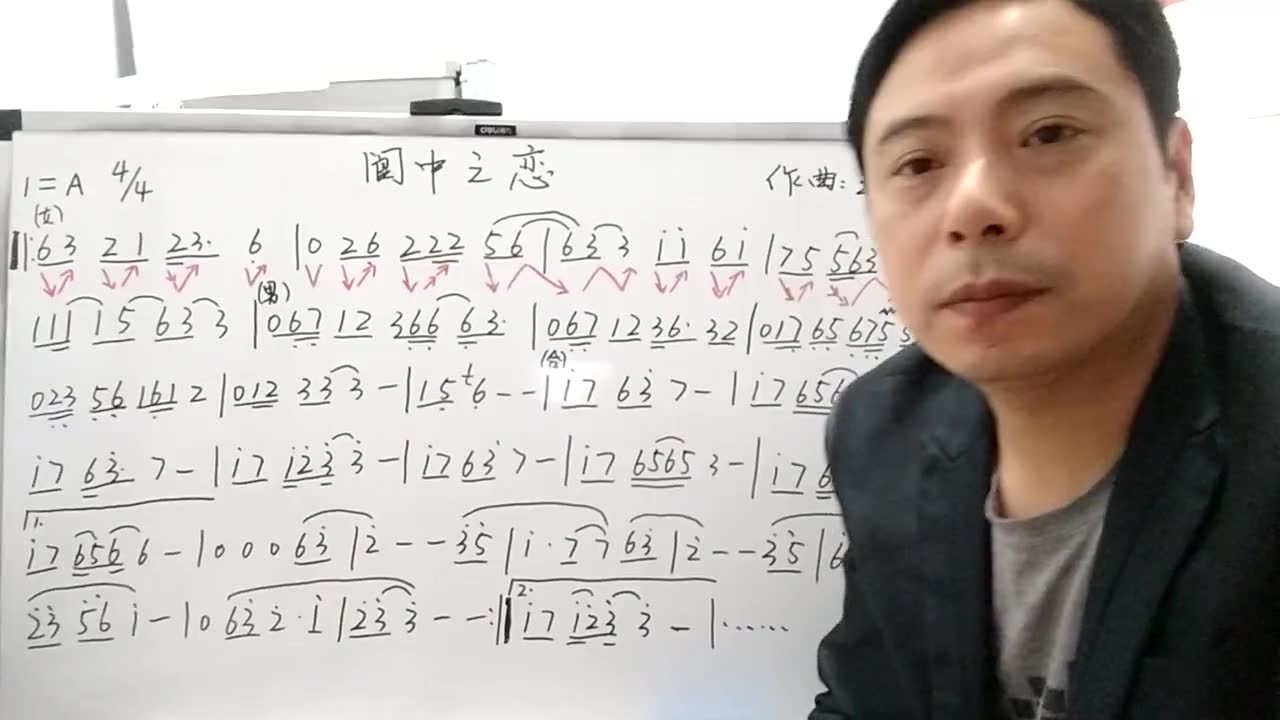 deli
阆中之恋
1=A 4/4 作曲:
(女)
‖:63 21 23· 6 |0 26 222 56 |633 i̇i̇ 6i̇ |75 563
(男)
111 15 633 |067 12 366 63· |067 12 36· 32 |017 65 675
(合)
023 56 161 2 |012 333 - |15 t6 - - |i̇7 63̇ 7 - |i̇7 656
i̇7 63̇· 7 - |i̇7 i̇2̇3̇ 3̇ - |i̇7 63̇ 7 - |i̇7 6565 3 - |i̇7 6
1.
i̇7 656 6 - |0 0 0 63̇ |2̇ - - 3̇5̇ |i̇ · 77 63̇ |2̇ - - 3̇5̇ |6
2.
2̇3̇ 5̇6̇ i̇ - |0 63̇ 2̇ · i̇ |2̇3̇ 3̇ - - :‖ i̇7 i̇2̇3̇ 3̇ - |……